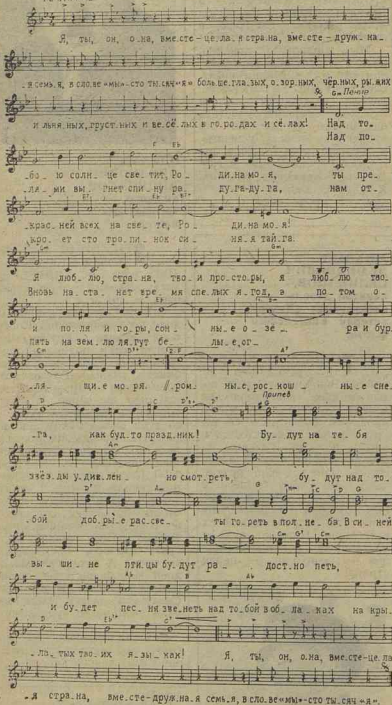 Я, ты, он, о.на, вме.сте-це.ла.я стра.на, вме.сте - друж. на.
.я семь.я, в сло.ве «мы»-сто ты.сяч «я» боль.ше.гла.зых, о.зор.ных, чёр.ных, ры.жих
Gm Пение
и льня.ных, груст.ных и ве.сё.лых в го.ро.дах и сё.лах! Над то.
Над по.
.бо.ю солн.це све.тит, Ро. ди.на мо.я, ты пре.
.ля.ми вы.гнет спи.ну ра. ду.га-ду.га, нам от.
.крас.ней всех на све.те, Ро. ди.на мо.я!
.кро.ет сто тро.пи.нок си. ня.я тай.га.
Я люб.лю, стра.на, тво.и про.сто.ры, я люб.лю тво.
Вновь на.ста.нет вре.мя спе.лых я.год, а по.том о.
и по.ля и го.ры, сон. ны.е о.зё. ра и бур.
пять на зем.лю ля.гут бе. лы.е, ог.
.ля. щи.е мо.ря.
.ром. ны.е, рос.кош. ны.е сне.
Припев
.га, как буд.то празд.ник! Бу.дут на те.бя
звёз.ды у.див.лён. но смот.реть, бу.дут над то.
.бой доб.ры.е рас.све. ты го.реть в пол.не.ба. В си.ней
вы.ши.не пти.цы бу.дут ра. дост.но петь,
и бу.дет пес.ня зве.неть над то.бой в об.ла.ках на кры.
.ла.тых тво.их я.зы.как! Я, ты, он, о.на, вме.сте-це.ла
.я стра.на, вме.сте-друж.на.я семь.я, в сло.ве «мы»-сто ты.сяч «я».